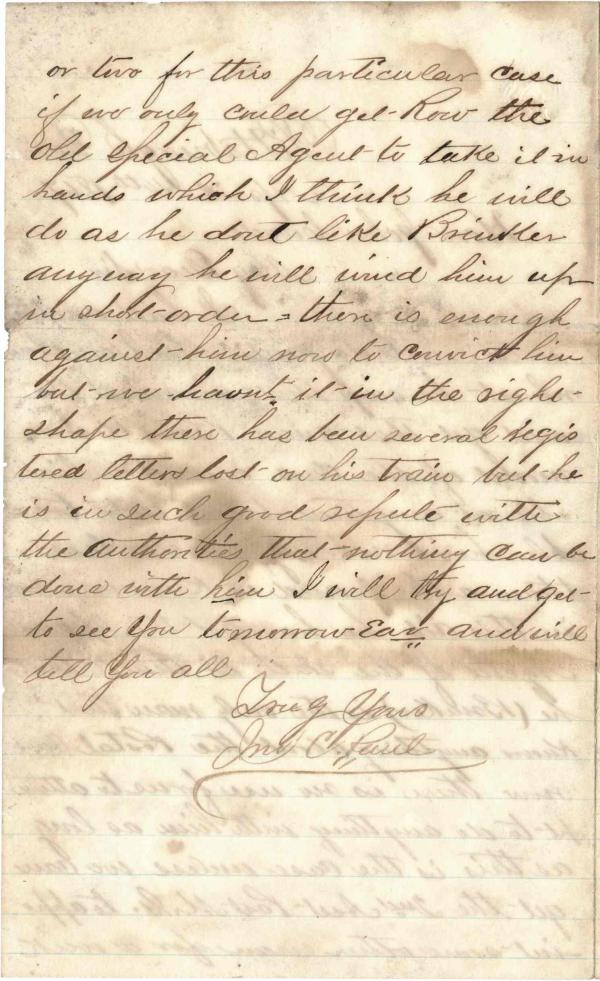 or two for this particular case
if we only could get Row the
Old Special Agent to take it in
hands which I think he will
do as he dont like Brinker
anyway he will wind him up
in short order = there is enough
against him now to convict him
but we havnt it in the right
shape there has been several regis
tered letters lost on his train but he
is in such good repute with
the authorities that nothing can be
done with him I will try and get
to see You tomorrow Eav and will
tell You all
Truly Yours
Jno C. Paul